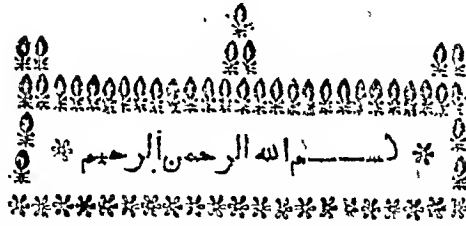 بســــم الله الرحمن الرحيم